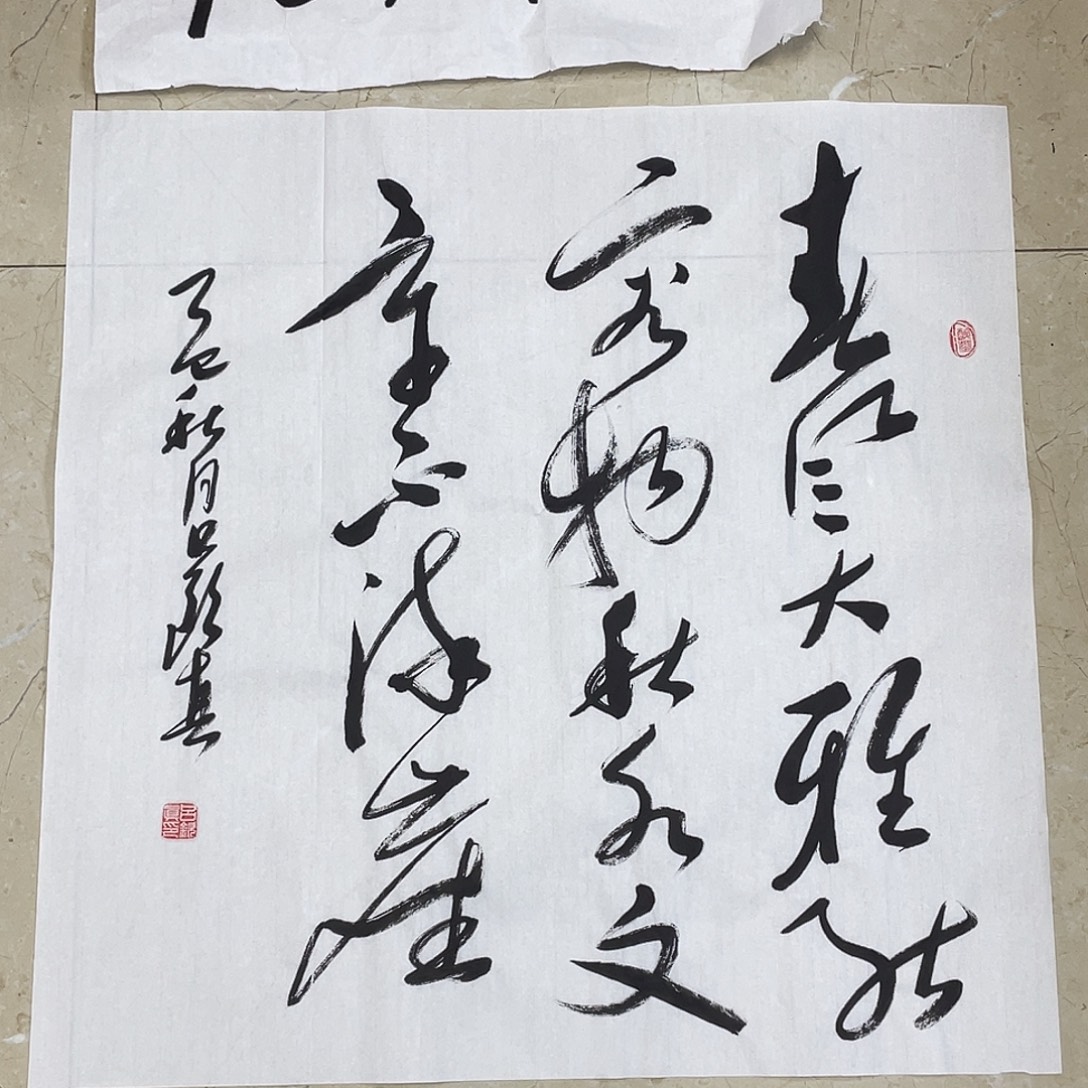 春風大雅能
容物秋水文
章不染塵
乙巳秋月吕真